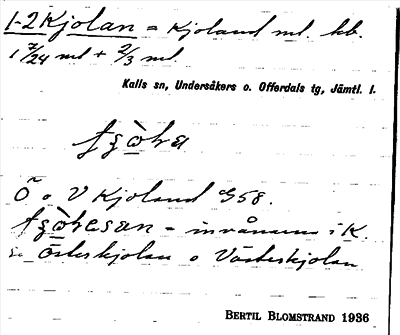 1-2 Kjolan = Kjoland ml. hb.
1 7/24 ml + 2/3 ml.
Kalls sn, Undersåkers o. Offerdals tg, Jämtl. l.
Ö o V Kjoland G58.
= invånarna i K.
Österkjolan o Västerkjolan
BERTIL BLOMSTRAND 1936